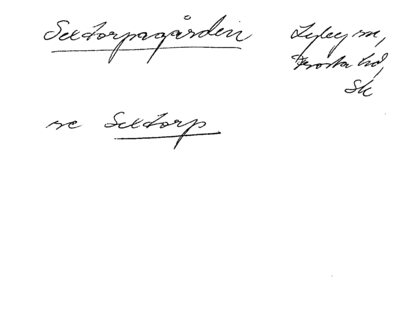 Sextorpagården
Frosta hd,
Sk
se Sextorp